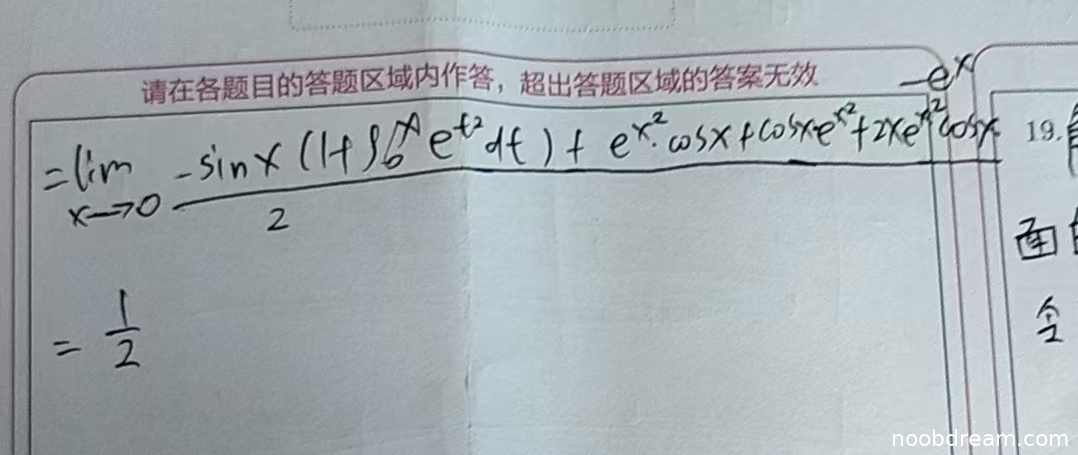 请在各题目的答题区域内作答，超出答题区域的答案无效
= lim x→0 (-sinx (1+∫₀ˣ e^{t²}dt) + e^{x²}·cosx + cosx·e^{x²} + 2xe^{x²}cosx - e^x) / 2
= 1/2
19.
面
令
noobdream.com